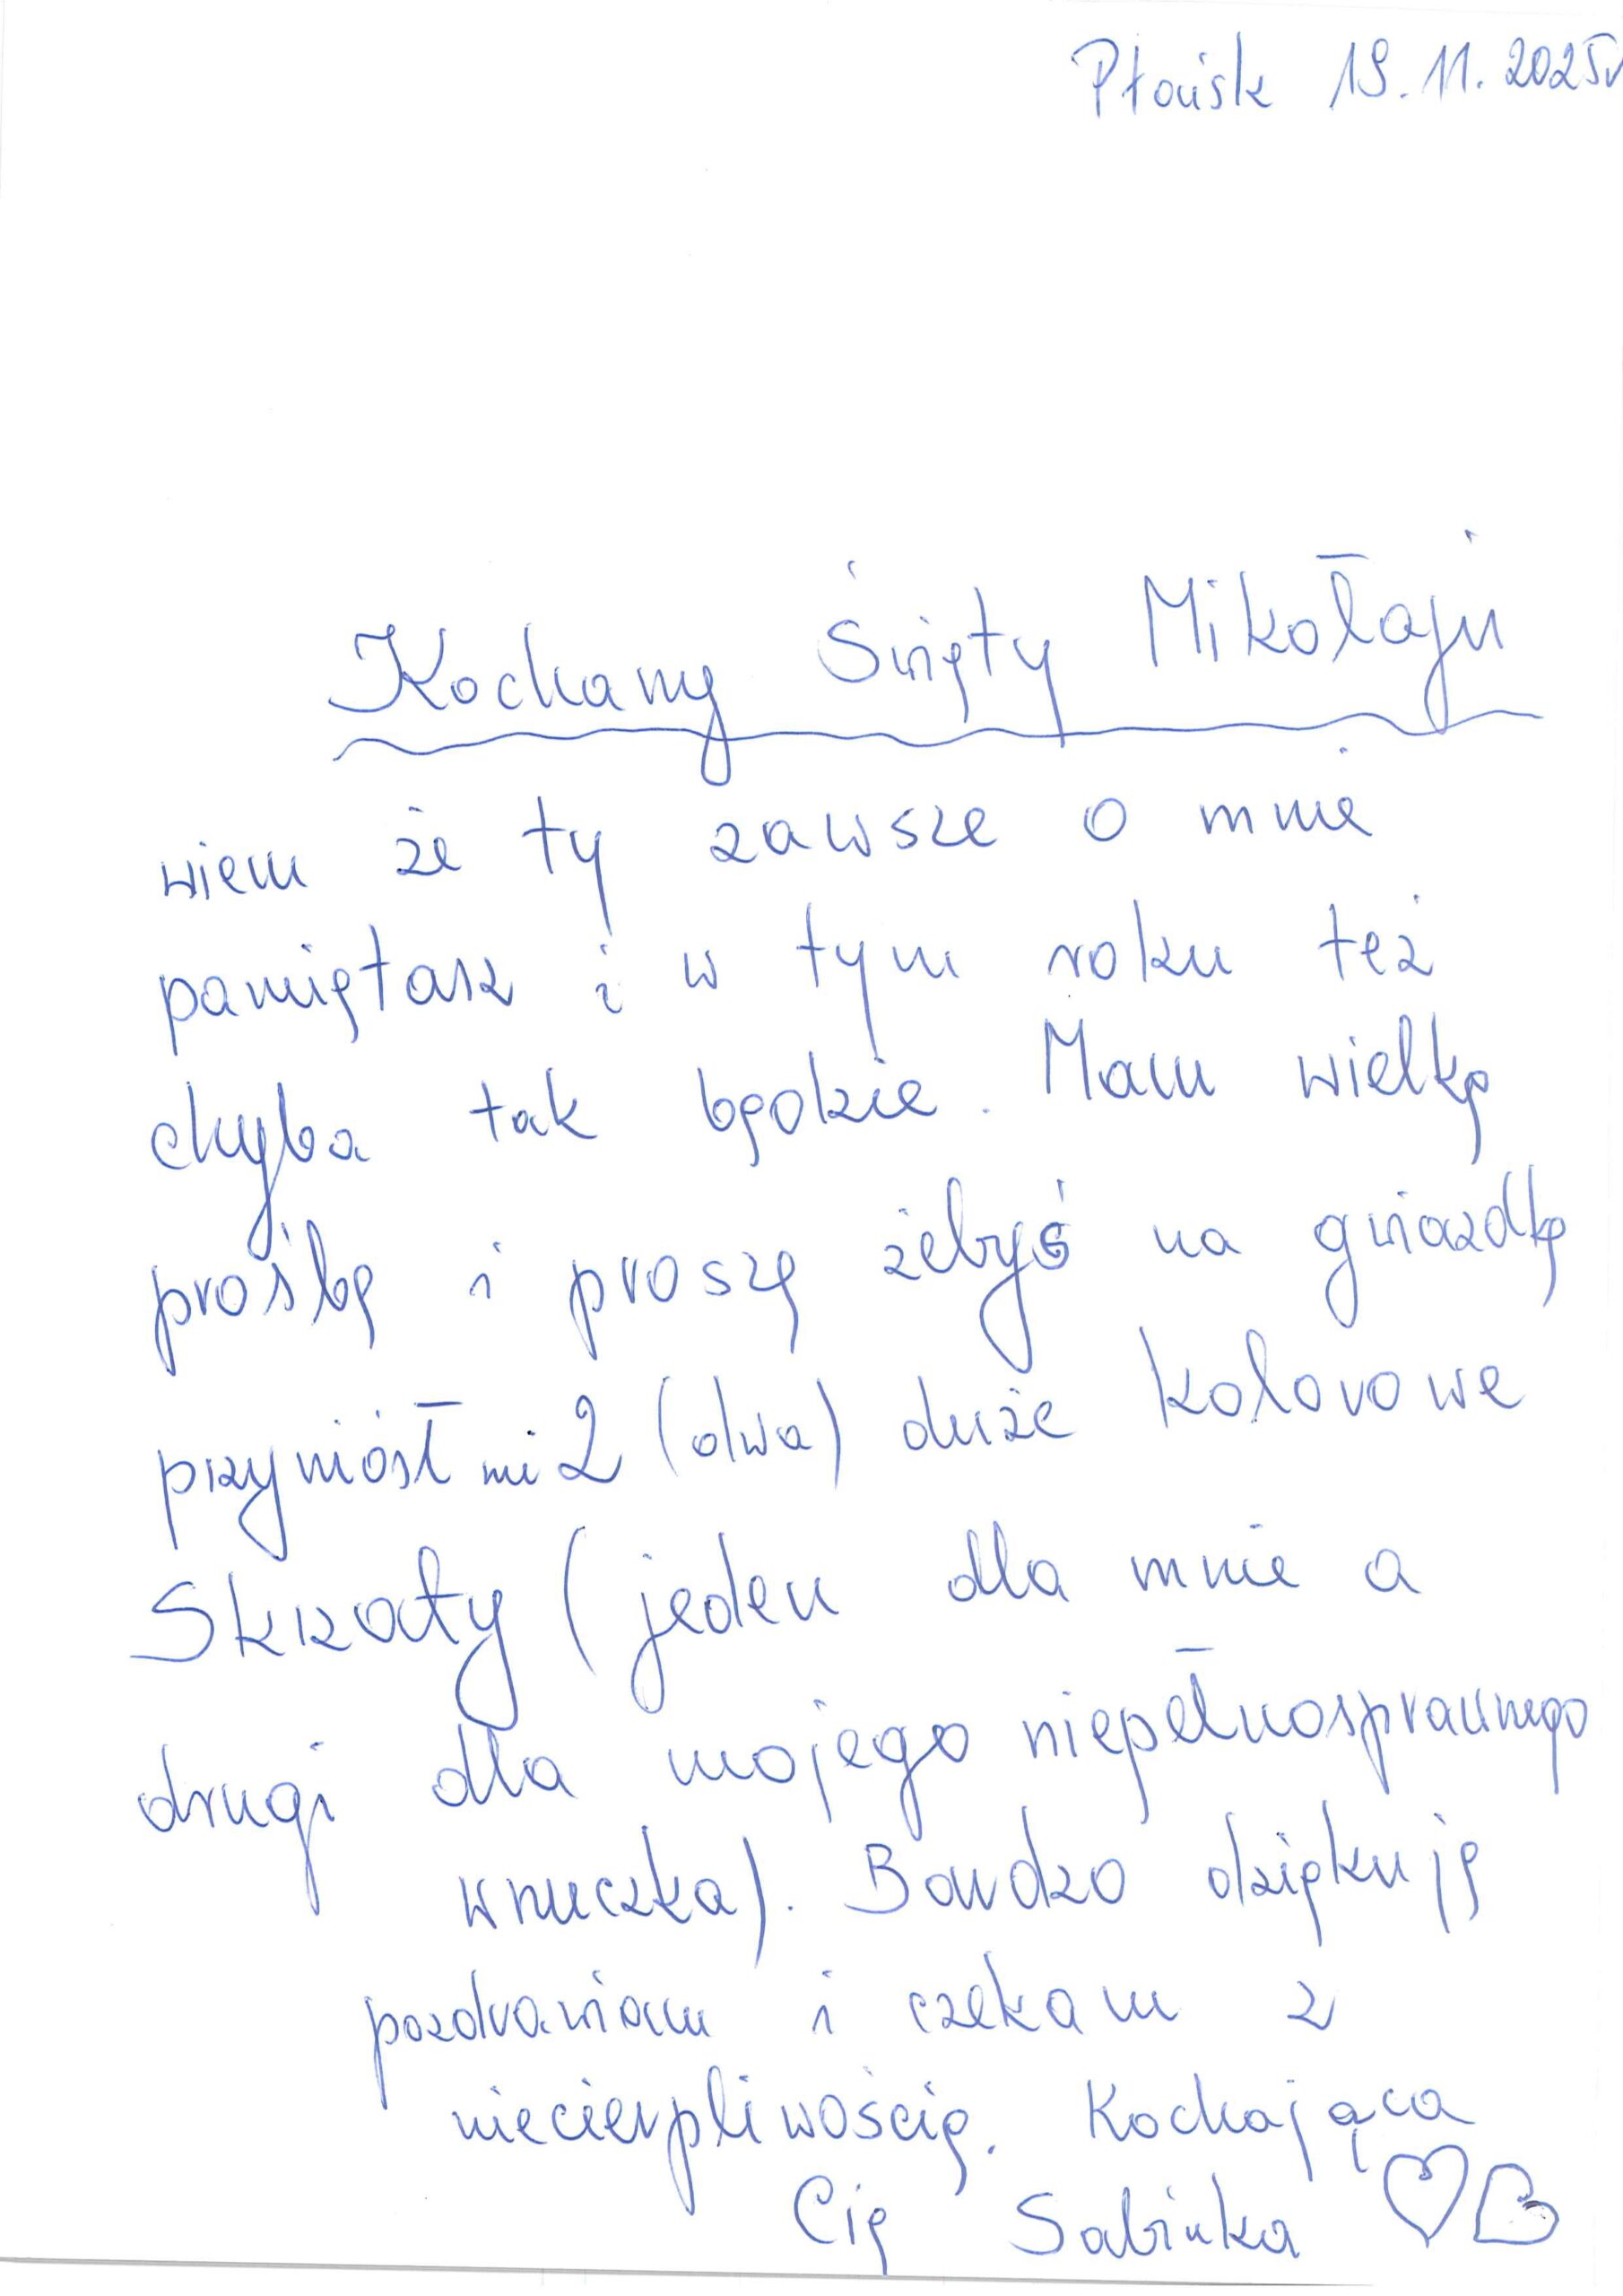 Płońsk 19.11.2025r
Kochany Święty Mikołaju
wiem że ty zawsze o mnie
pamiętasz i w tym roku też
chyba tak będzie. Mam wielką
prośbę i proszę żebyś na gwiazdkę
przyniósł mi 2 (dwa) duże kolorowe
Skrzaty (jeden dla mnie a
drugi dla mojego niepełnosprawnego
wnuczka). Bardzo dziękuję
pozdrawiam i czekam z
niecierpliwością. Kochająca
Cię Sabinka